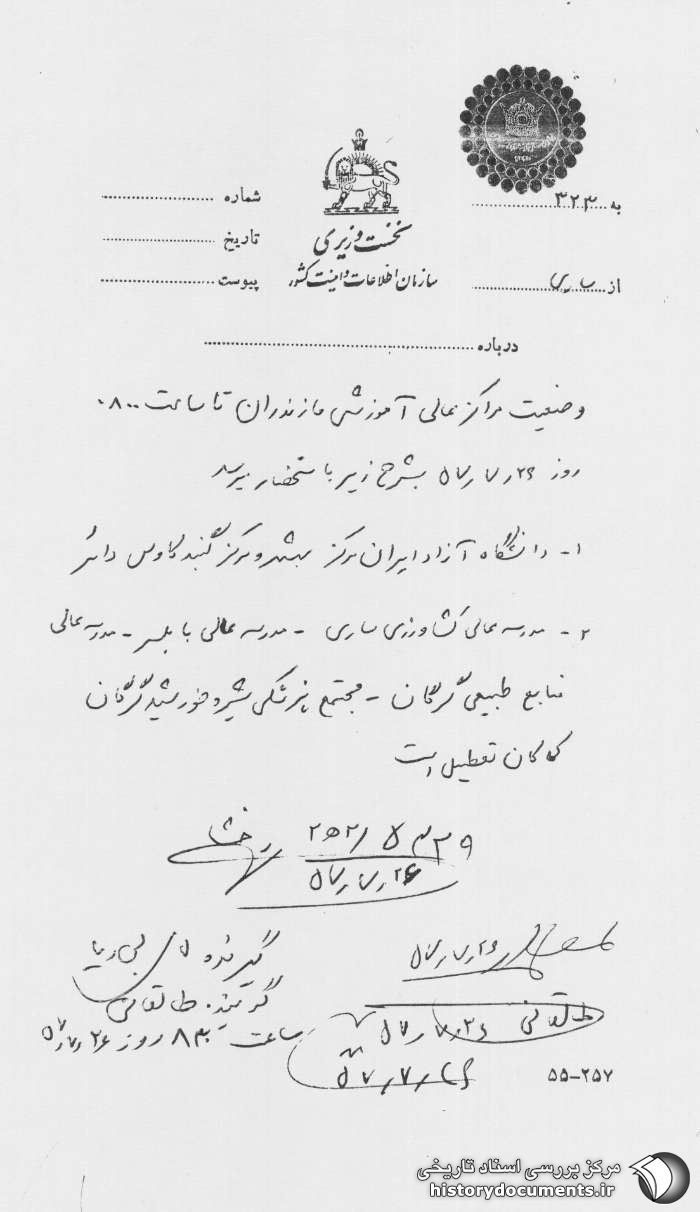 به ۳۲۳
شماره
نخست وزیری
تاریخ
سازمان اطلاعات و امنیت کشور
از ساری
پیوست
درباره
وضعیت مراکز عالی آموزشی مازندران تا ساعت ۰۸۰۰
روز ۵۷٫۷٫۲۶ بشرح زیر باستحضار میرسد
۱- دانشگاه آزاد ایران مرکز بهشهر و مرکز گنبد کاوس دائر
۲- مدرسه عالی کشاورزی ساری - مدرسه عالی بابلسر - مدرسه عالی
منابع طبیعی گرگان - مجتمع پزشکی شیر و خورشید گرگان
کماکان تعطیل است
۵۷٫۷٫۲۶
۵۷٫۷٫۲۶
گیرنده
گوینده. طالقانی
ساعت ۸۳۰ روز ۵۷٫۷٫۲۶
طالقانی ۵۷٫۷٫۲۶
۵۷٫۷٫۲۶
۵۵-۲۵۷
مرکز بررسی اسناد تاریخی
historydocuments.ir